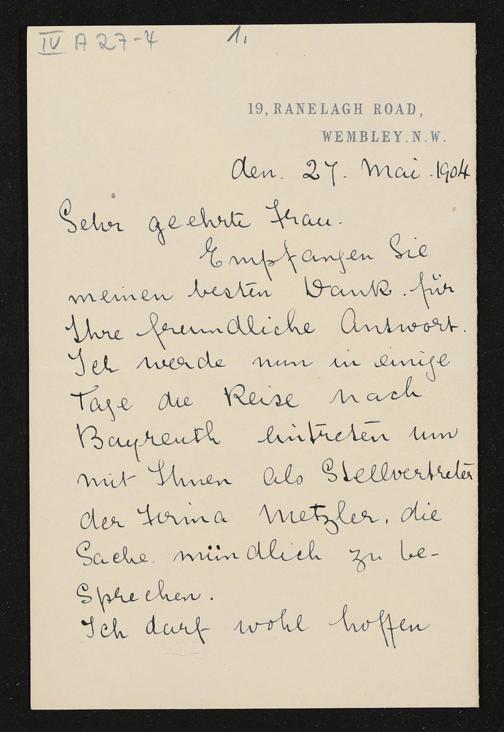 IV A 27-4
1.
19, RANELAGH ROAD,
WEMBLEY. N.W.
den. 27. Mai. 1904
Sehr geehrte Frau.
Empfangen Sie
meinen besten Dank. für
Ihre freundliche Antwort.
Ich werde nun in einige
Tage die Reise nach
Bayreuth eintreten um
mit Ihnen als Stellvertreter
der Firma Metzler, die
Sache mündlich zu be-
sprechen.
Ich darf wohl hoffen